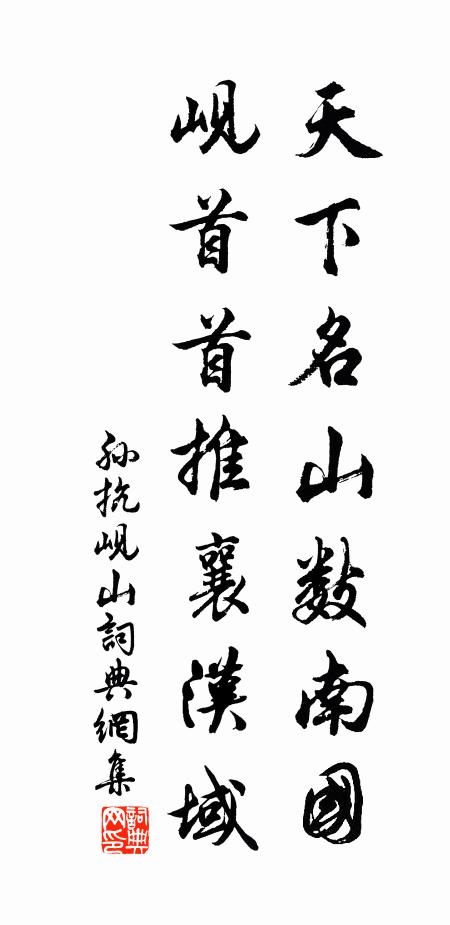 天下名山數南國
峴首首推襄漢域
孫抗峴山詞典網集
詞典網印